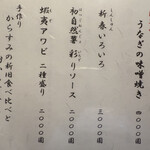 うなぎの味噌焼き 四〇〇〇円
新春いろいろ 三〇〇〇円
初自然薯 彩りソース 二〇〇〇円
蝦夷アワビ 二種盛り 二〇〇〇円
手作り
からすみの新旧食べ比べと